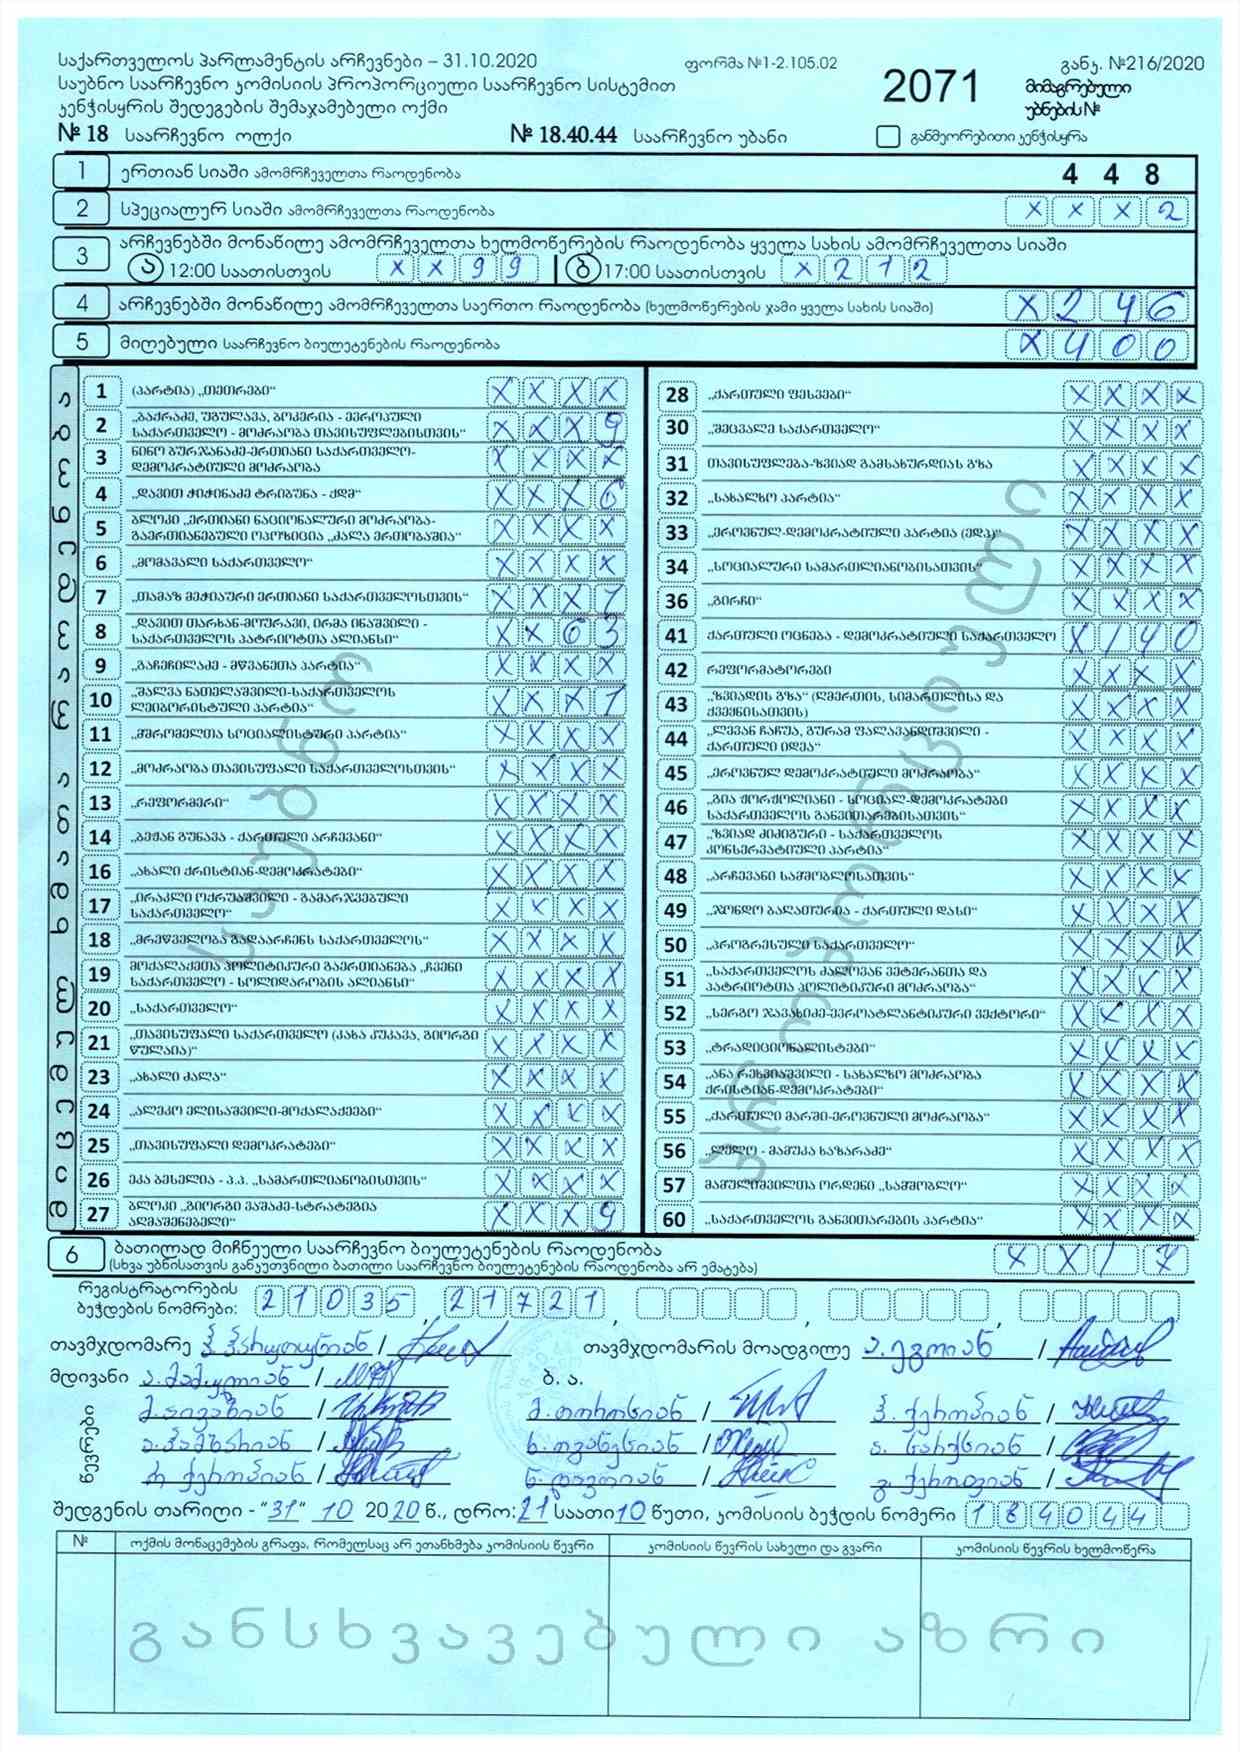 საქართველოს პარლამენტის არჩევნები – 31.10.2020
ფორმა №1-2.105.02
განკ. №216/2020
საუბნო საარჩევნო კომისიის პროპორციული საარჩევნო სისტემით
კენჭისყრის შედეგების შემაჯამებელი ოქმი
2071
მიმაგრებული
უბნების №
№ 18 საარჩევნო ოლქი
№ 18.40.44 საარჩევნო უბანი
განმეორებითი კენჭისყრა
1 ერთიან სიაში ამომრჩეველთა რაოდენობა 4 4 8
2 სპეციალურ სიაში ამომრჩეველთა რაოდენობა X X X 2
3 არჩევნებში მონაწილე ამომრჩეველთა ხელმოწერების რაოდენობა ყველა სახის ამომრჩეველთა სიაში
ა 12:00 საათისთვის X X 9 9 ბ 17:00 საათისთვის X 2 1 2
4 არჩევნებში მონაწილე ამომრჩეველთა საერთო რაოდენობა (ხელმოწერების ჯამი ყველა სახის სიაში) X 2 4 6
5 მიღებული საარჩევნო ბიულეტენების რაოდენობა X 4 0 0
1 (პარტია) „თეთრები“ X X X X
2 „ბაქრაძე, უგულავა, ბოკერია - ევროპული საქართველო - მოძრაობა თავისუფლებისთვის“ X X X 9
3 ნინო ბურჯანაძე-ერთიანი საქართველო-დემოკრატიული მოძრაობა X X X X
4 „დავით ჭიჭინაძე ტრიბუნა - ქდმ“ X X X 6
5 ბლოკი „ერთიანი ნაციონალური მოძრაობა-გაერთიანებული ოპოზიცია „ძალა ერთობაშია“ X X X X
6 „მომავალი საქართველო“ X X X X
7 „თამაზ მეჭიაური ერთიანი საქართველოსთვის“ X X X 1
8 „დავით თარხან-მოურავი, ირმა ინაშვილი - საქართველოს პატრიოტთა ალიანსი“ X X 6 3
9 „გაჩეჩილაძე - მწვანეთა პარტია“ X X X X
10 „შალვა ნათელაშვილი-საქართველოს ლეიბორისტული პარტია“ X X X 1
11 „მშრომელთა სოციალისტური პარტია“ X X X X
12 „მოძრაობა თავისუფალი საქართველოსთვის“ X X X X
13 „რეფორმერი“ X X X X
14 „ბეჟან გუნავა - ქართული არჩევანი“ X X X X
16 „ახალი ქრისტიან-დემოკრატები“ X X X X
17 „ირაკლი ოქრუაშვილი - გამარჯვებული საქართველო“ X X X X
18 „მრეწველობა გადაარჩენს საქართველოს“ X X X X
19 მოქალაქეთა პოლიტიკური გაერთიანება „ჩვენი საქართველო - სოლიდარობის ალიანსი“ X X X X
20 „საქართველო“ X X X X
21 „თავისუფალი საქართველო (კახა კუკავა, გიორგი წულაია)“ X X X X
23 „ახალი ძალა“ X X X X
24 „ალეკო ელისაშვილი-მოქალაქეები“ X X X X
25 „თავისუფალი დემოკრატები“ X X X X
26 ეკა ბესელია - პ.პ. „სამართლიანობისთვის“ X X X X
27 ბლოკი „გიორგი ვაშაძე-სტრატეგია აღმაშენებელი“ X X X 9
28 „ქართული ფესვები“ X X X X
30 „შეცვალე საქართველო“ X X X X
31 თავისუფლება-ზვიად გამსახურდიას გზა X X X X
32 „სახალხო პარტია“ X X X X
33 „ეროვნულ-დემოკრატიული პარტია (ედპ)“ X X X X
34 „სოციალური სამართლიანობისათვის“ X X X X
36 „გირჩი“ X X X X
41 ქართული ოცნება - დემოკრატიული საქართველო X 1 4 0
42 რეფორმატორები X X X X
43 „ზვიადის გზა“ (ღმერთის, სიმართლისა და ქვეყნისათვის) X X X X
44 „ლევან ჩაჩუა, გურამ ფალავანდიშვილი - ქართული იდეა“ X X X X
45 „ეროვნულ დემოკრატიული მოძრაობა“ X X X X
46 „გია ჟორჟოლიანი - სოციალ-დემოკრატები საქართველოს განვითარებისათვის“ X X X X
47 „ზვიად ძიძიგური - საქართველოს კონსერვატიული პარტია“ X X X X
48 „არჩევანი სამშობლოსათვის“ X X X X
49 „ჯონდო ბაღათურია - ქართული დასი“ X X X X
50 „პროგრესული საქართველო“ X X X X
51 „საქართველოს ძალოვან ვეტერანთა და პატრიოტთა პოლიტიკური მოძრაობა“ X X X X
52 „სერგო ჯავახიძე-ევროატლანტიკური ვექტორი“ X X X X
53 „ტრადიციონალისტები“ X X X X
54 „ანა რეხვიაშვილი - სახალხო მოძრაობა ქრისტიან-დემოკრატები“ X X X X
55 „ქართული მარში-ეროვნული მოძრაობა“ X X X X
56 „ლელო - მამუკა ხაზარაძე“ X X X X
57 მამულიშვილთა ორდენი „სამშობლო“ X X X X
60 „საქართველოს განვითარების პარტია“ X X X X
საუბნო
პროპორციული
6 ბათილად მიჩნეული საარჩევნო ბიულეტენების რაოდენობა X X 1 7
(სხვა უბნისათვის განკუთვნილი ბათილი საარჩევნო ბიულეტენების რაოდენობა არ ემატება)
რეგისტრატორების
ბეჭდების ნომრები: 21035, 21721
თავმჯდომარე
თავმჯდომარის მოადგილე ა. ეგოიან
მდივანი
ბ. ა.
წევრები
მ. თოროსიან
ა. სარქსიან
შედგენის თარიღი - “31“ 10 2020 წ., დრო: 21 საათი 10 წუთი, კომისიის ბეჭდის ნომერი 184044
№
ოქმის მონაცემების გრაფა, რომელსაც არ ეთანხმება კომისიის წევრი
კომისიის წევრის სახელი და გვარი
კომისიის წევრის ხელმოწერა
განსხვავებული აზრი